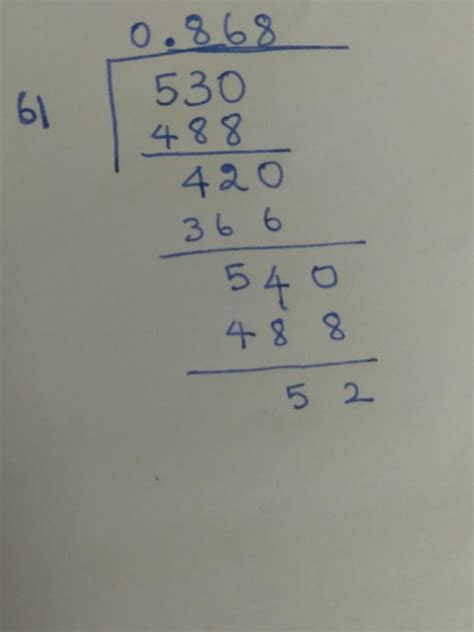 0.868
61 530
488
420
366
540
488
52